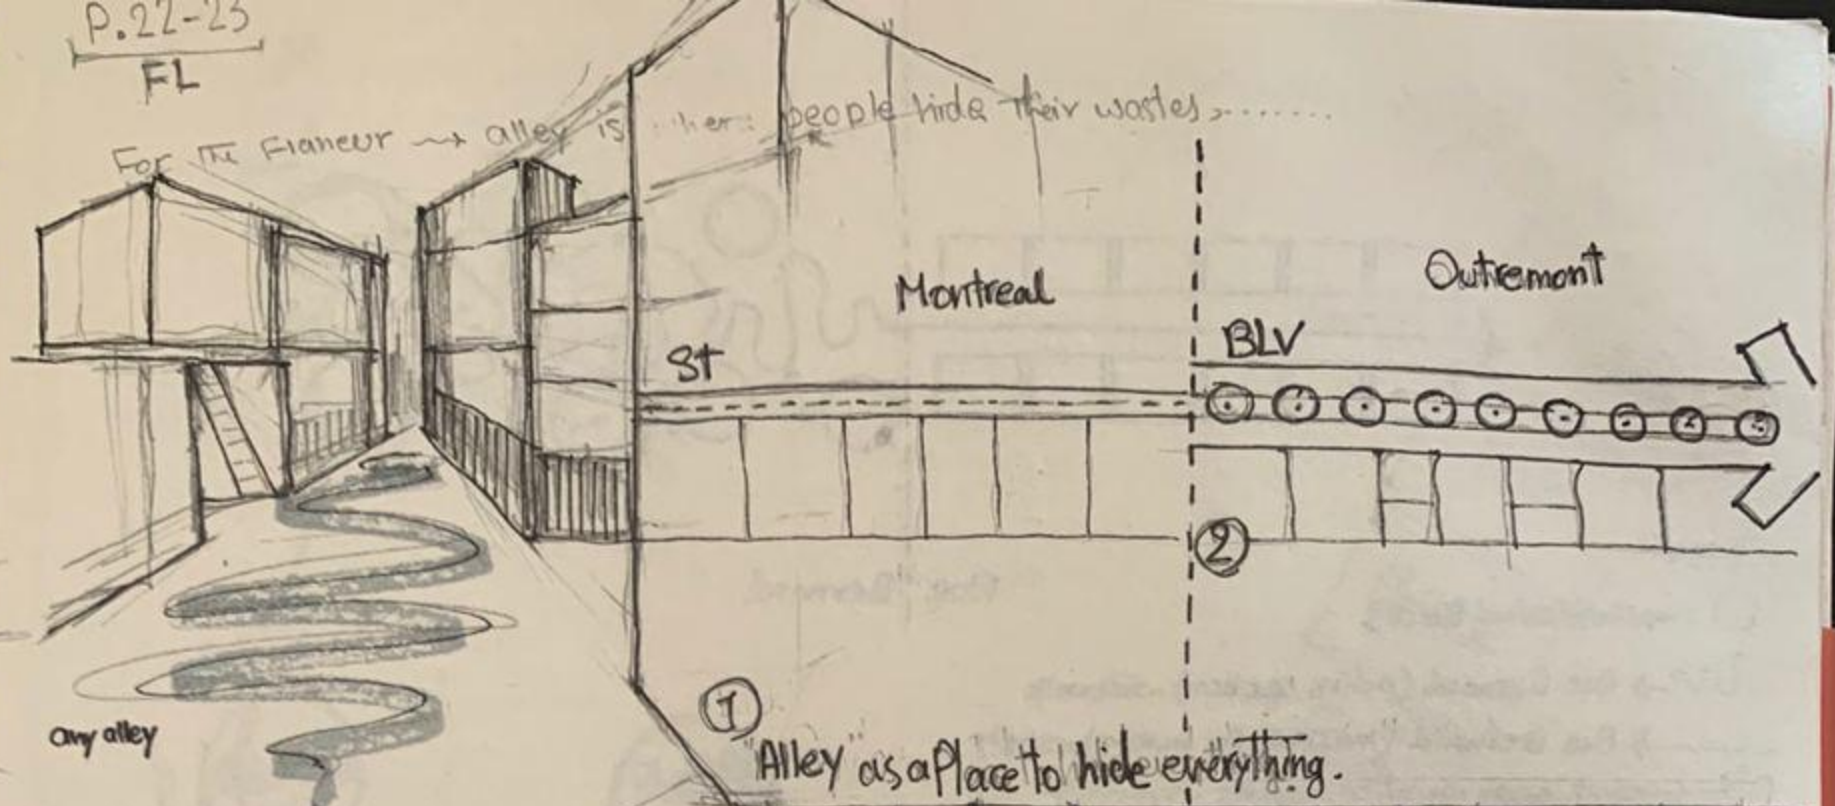 P.22-23
FL
For the Flaneur → alley is where people hide their wastes, .......
Montreal
Outremont
St
BLV
2
any alley
1
"Alley" as a Place to hide everything.